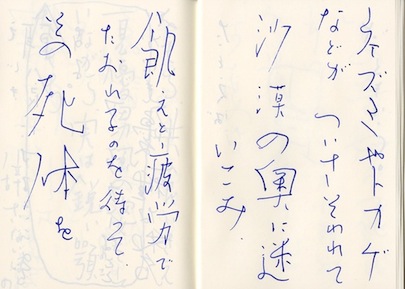 ネズミやトカゲ
などが
ついさそわれて
沙漠の奥に迷
いこみ、
飢えと疲労で
たおれるのを待って、
その死体を